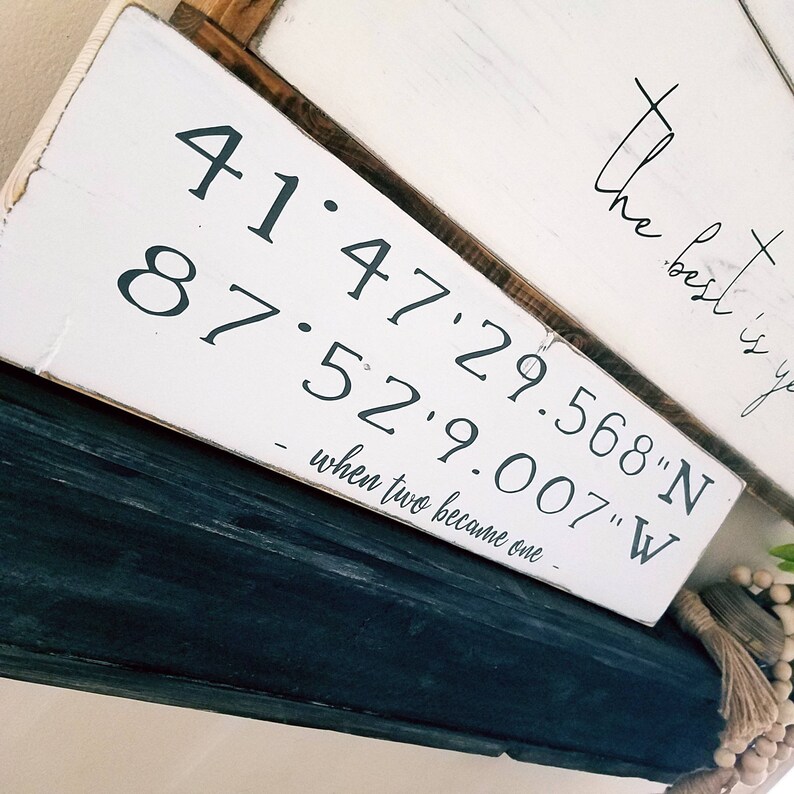 41°47'29.568"N
87°52'9.007"W
- when two became one -
the
best
is